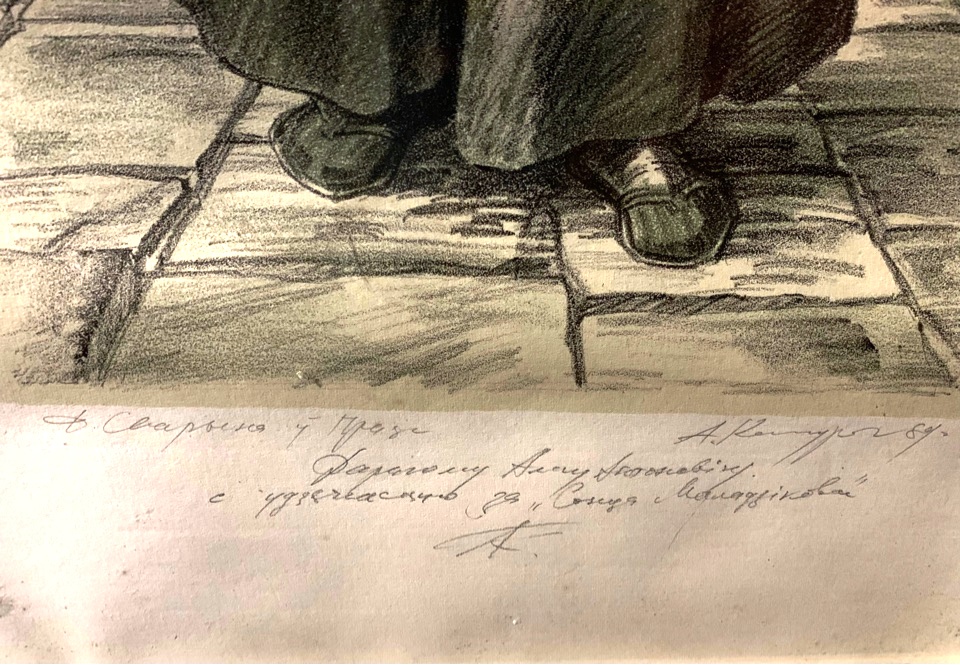 Ф. Скарына ў Празе А. Кашкурэвіч 89г.
Дарагому Алегу Антонавічу
с удзячнасцю за „Сонца Маладзіковае"